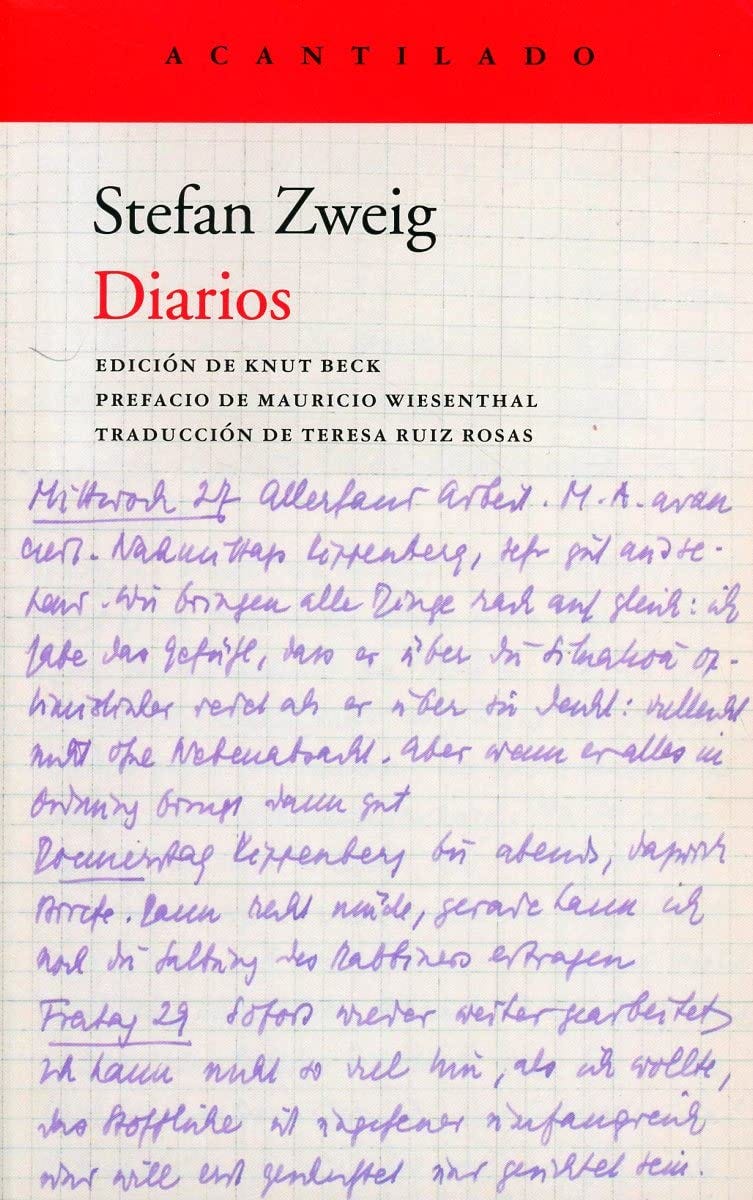 ACANTILADO
Stefan Zweig
Diarios
EDICIÓN DE KNUT BECK
PREFACIO DE MAURICIO WIESENTHAL
TRADUCCIÓN DE TERESA RUIZ ROSAS
Mittwoch 27 Allerhand Arbeit. M. A. avan
ciert. Nachmittags Kippenberg, sehr gut
Wir bringen alle Dinge rasch auf gleich: ich
habe das Gefühl, dass er über die Situation op-
timistischer redet als er über sie denkt: vielleicht
nicht ohne Nebenabsicht. Aber wenn er alles in
Ordnung bringt dann gut
Donnerstag Kippenberg bis abends,
Dann recht müde, gerade kann ich
noch die des Rabbiners ertragen
Freitag 29 Sofort wieder weitergearbeitet
Ich kann nicht so viel tun, als ich wollte,
das Stoffliche ist ungeheuer umfangreich
und will erst gesichtet sein.